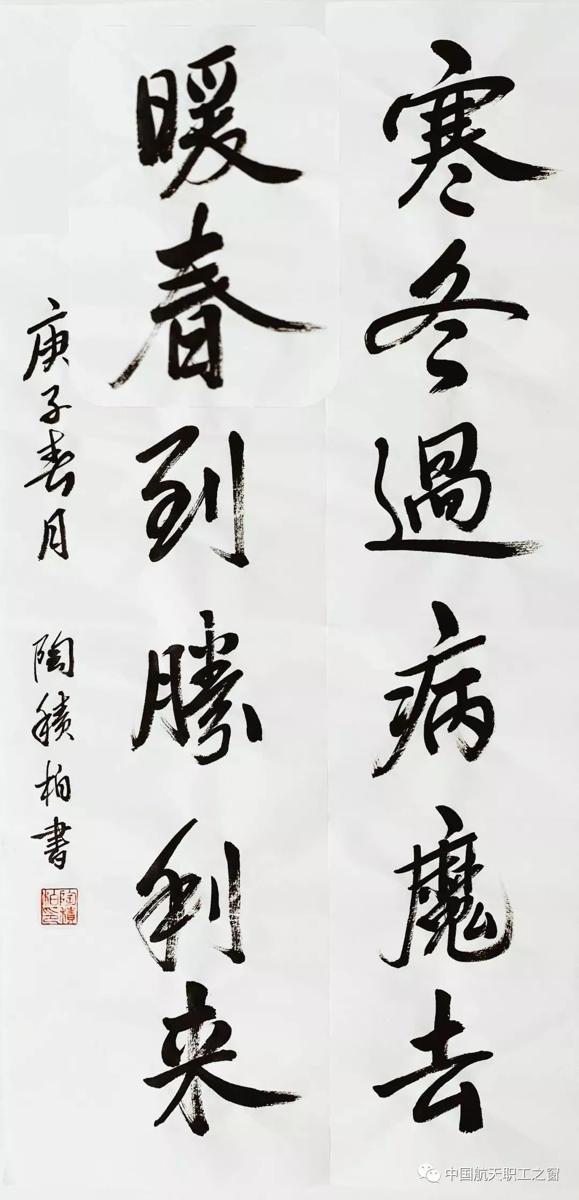 寒冬過病魔去
暖春到勝利来
庚子春月 陶積柏書
陶積柏印
中国航天职工之窗